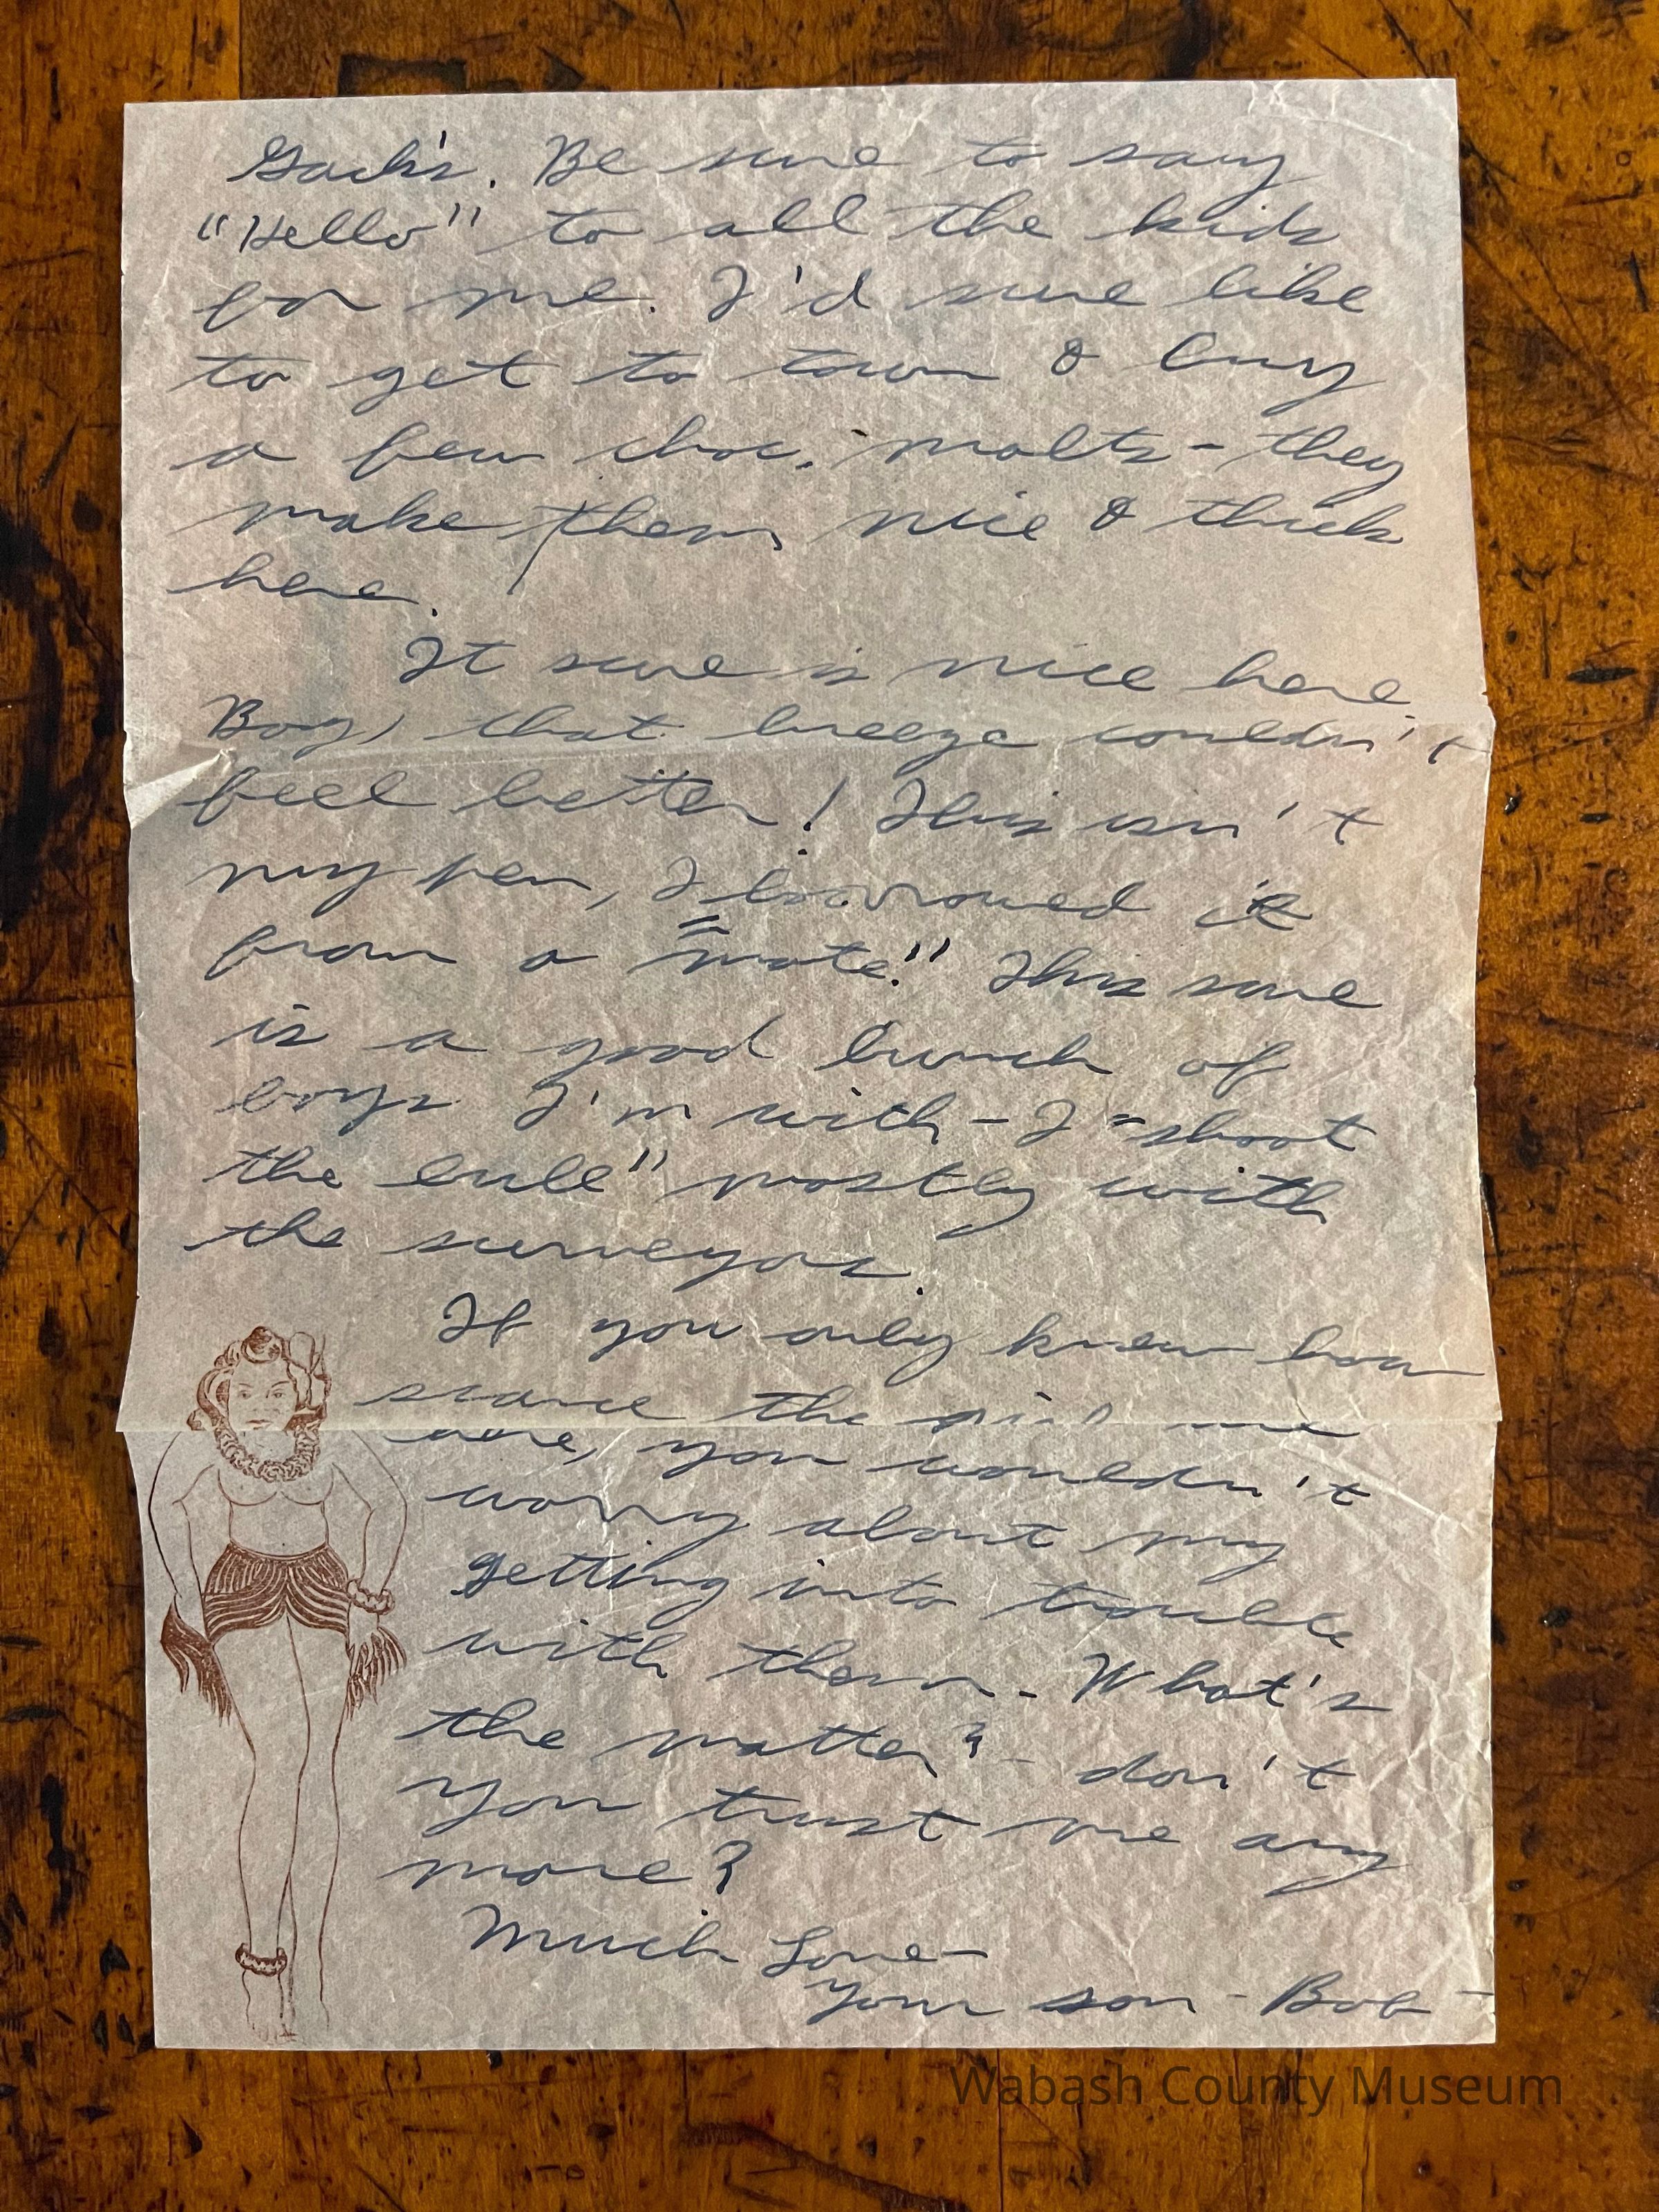 Be sure to say
"Hello" to all the kids
for me. I'd sure like
to get to town & buy
a few choc. malts - they
make them nice & thick
here.
It sure is nice here.
Boy, that breeze couldn't
feel better! This isn't
my pen, I borrowed it
from a "mate." This sure
is a good bunch of
boys I'm with - I "shoot
the bull" mostly with
the surveyors.
If you only knew how
scarce the girls are
here, you wouldn't
worry about my
getting into trouble
with them. What's
the matter? - don't
you trust me any
more?
Much Love -
Your son - Bob -
Wabash County Museum